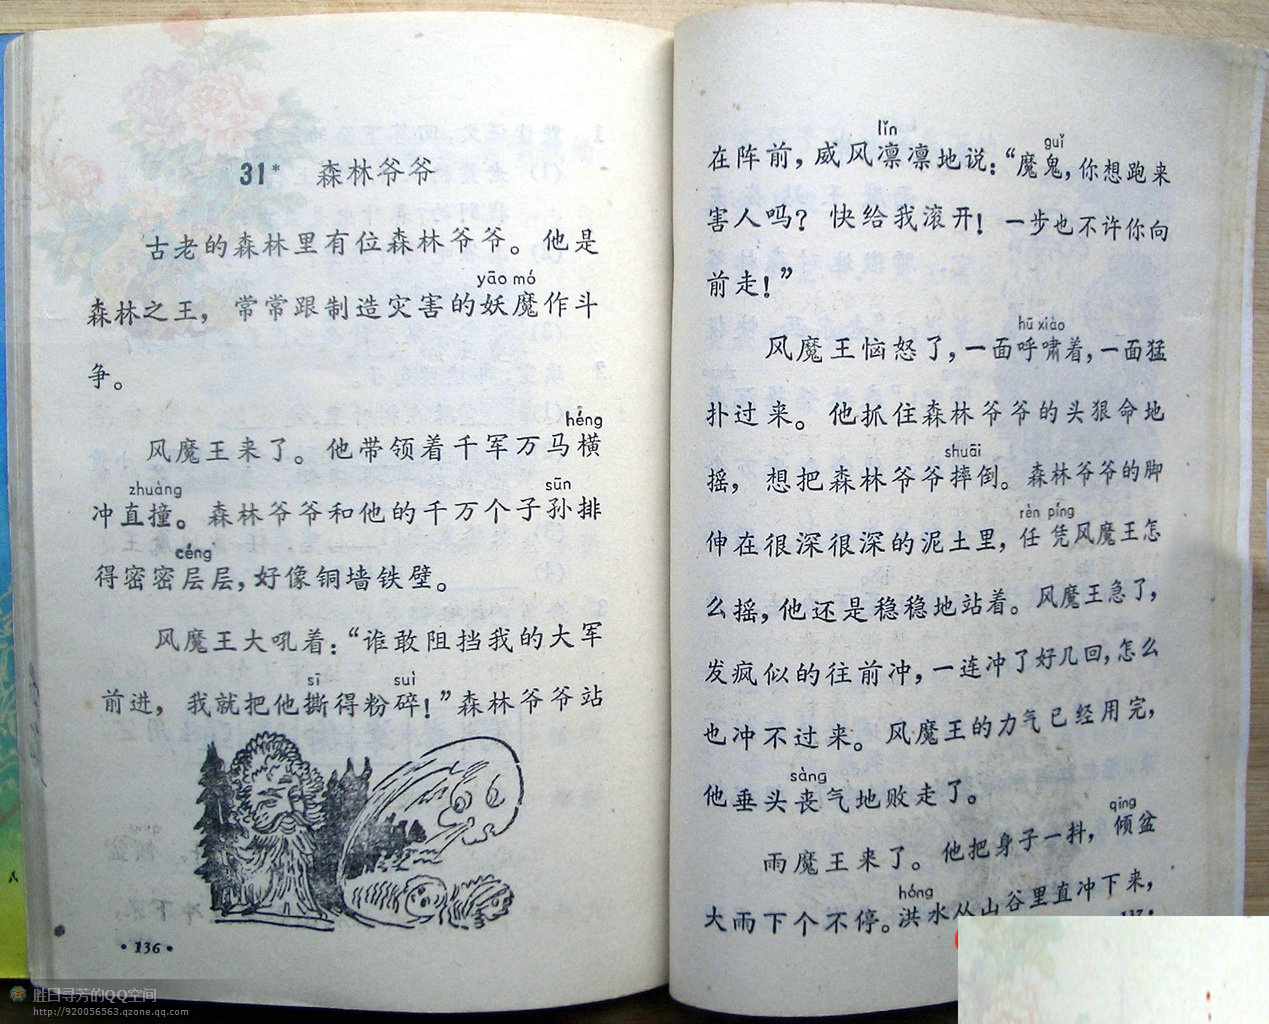 31* 森林爷爷
古老的森林里有位森林爷爷。他是
yāo mó
森林之王，常常跟制造灾害的妖魔作斗
争。
héng
风魔王来了。他带领着千军万马横
zhuàng sūn
冲直撞。森林爷爷和他的千万个子孙排
céng
得密密层层，好像铜墙铁壁。
风魔王大吼着：“谁敢阻挡我的大军
sī suì
前进，我就把他撕得粉碎！”森林爷爷站
•136•
lǐn guǐ
在阵前，威风凛凛地说：“魔鬼，你想跑来
害人吗？快给我滚开！一步也不许你向
前走！”
hū xiào
风魔王恼怒了，一面呼啸着，一面猛
扑过来。他抓住森林爷爷的头狠命地
shuāi
摇，想把森林爷爷摔倒。森林爷爷的脚
rèn píng
伸在很深很深的泥土里，任凭风魔王怎
么摇，他还是稳稳地站着。风魔王急了，
发疯似的往前冲，一连冲了好几回，怎么
也冲不过来。风魔王的力气已经用完，
sàng
他垂头丧气地败走了。
qīng
雨魔王来了。他把身子一抖，倾盆
hóng
大雨下个不停。洪水从山谷里直冲下来，
137•
胜日寻芳的QQ空间
http://920056563.qzone.qq.com